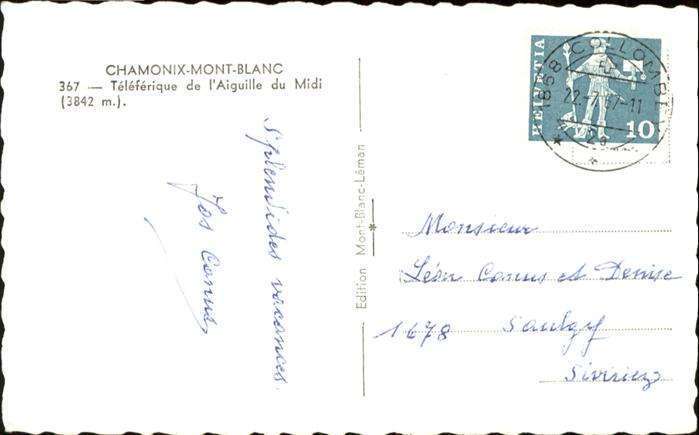 CHAMONIX-MONT-BLANC
367 — Téléférique de l'Aiguille du Midi
(3842 m.).
Splendides vacances.
Jos Canus
Edition Mont-Blanc-Léman
HELVETIA
10
1868 COLLOMBEY
22.-7.67-11
Monsieur
Léon Canus et Denise
1678 Saulgy
Siviriez